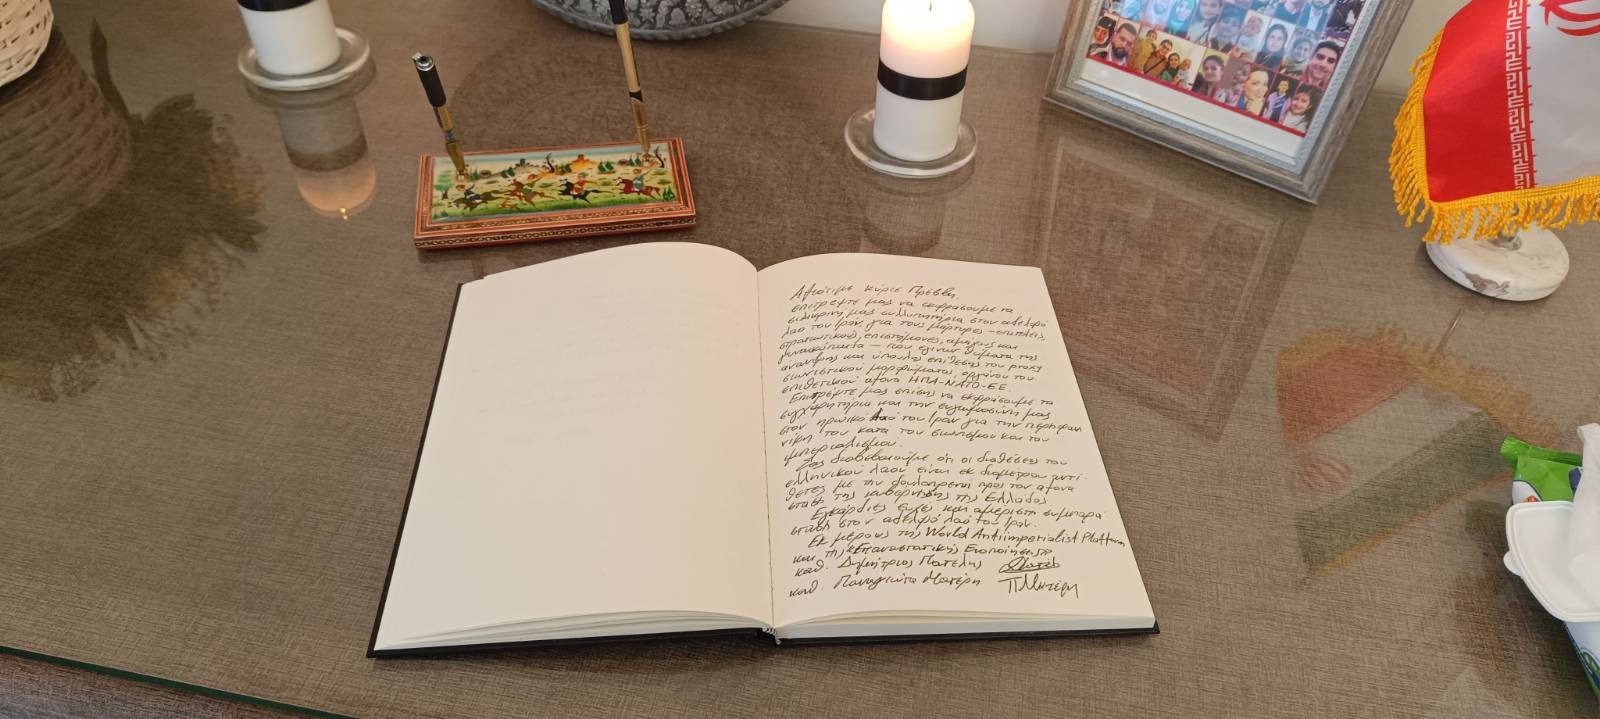 Αξιότιμε κύριε Πρέσβη,
επιτρέψτε μας να εκφράσουμε τα
ειλικρινή μας συλλυπητήρια στον αδελφό
λαό του Ιράν, για τους μάρτυρες – επιτελείς,
στρατιωτικούς, επιστήμονες, αμάχους και
γυναικόπαιδα – που έγιναν θύματα της
άνανδρης και ύπουλης επίθεσης του proxy
σιωνιστικού μορφώματος, οργάνου του
επιθετικού άξονα ΗΠΑ-ΝΑΤΟ-ΕΕ.
Επιτρέψτε μας επίσης να εκφράσουμε τα
συγχαρητήρια και την ευγνωμοσύνη μας
στον ηρωικό λαό του Ιράν για την περήφανη
νίκη του κατά του σιωνισμού και του
ιμπεριαλισμού.
Σας διαβεβαιούμε ότι οι διαθέσεις του
ελληνικού λαού είναι εκ διαμέτρου αντί-
θετες με την δουλοπρεπή προς τον άξονα
στάση της κυβέρνησης της Ελλάδος
Εγκάρδιες ευχές και αμέριστη συμπαρά-
σταση στον αδελφό λαό του Ιράν.
Εκ μέρους της World Antiimperialist Platform
και της «Επαναστατικής Ενοποίησης»
καθ. Δημήτριος Πατέλης
καθ. Παναγιώτα Ματέρη